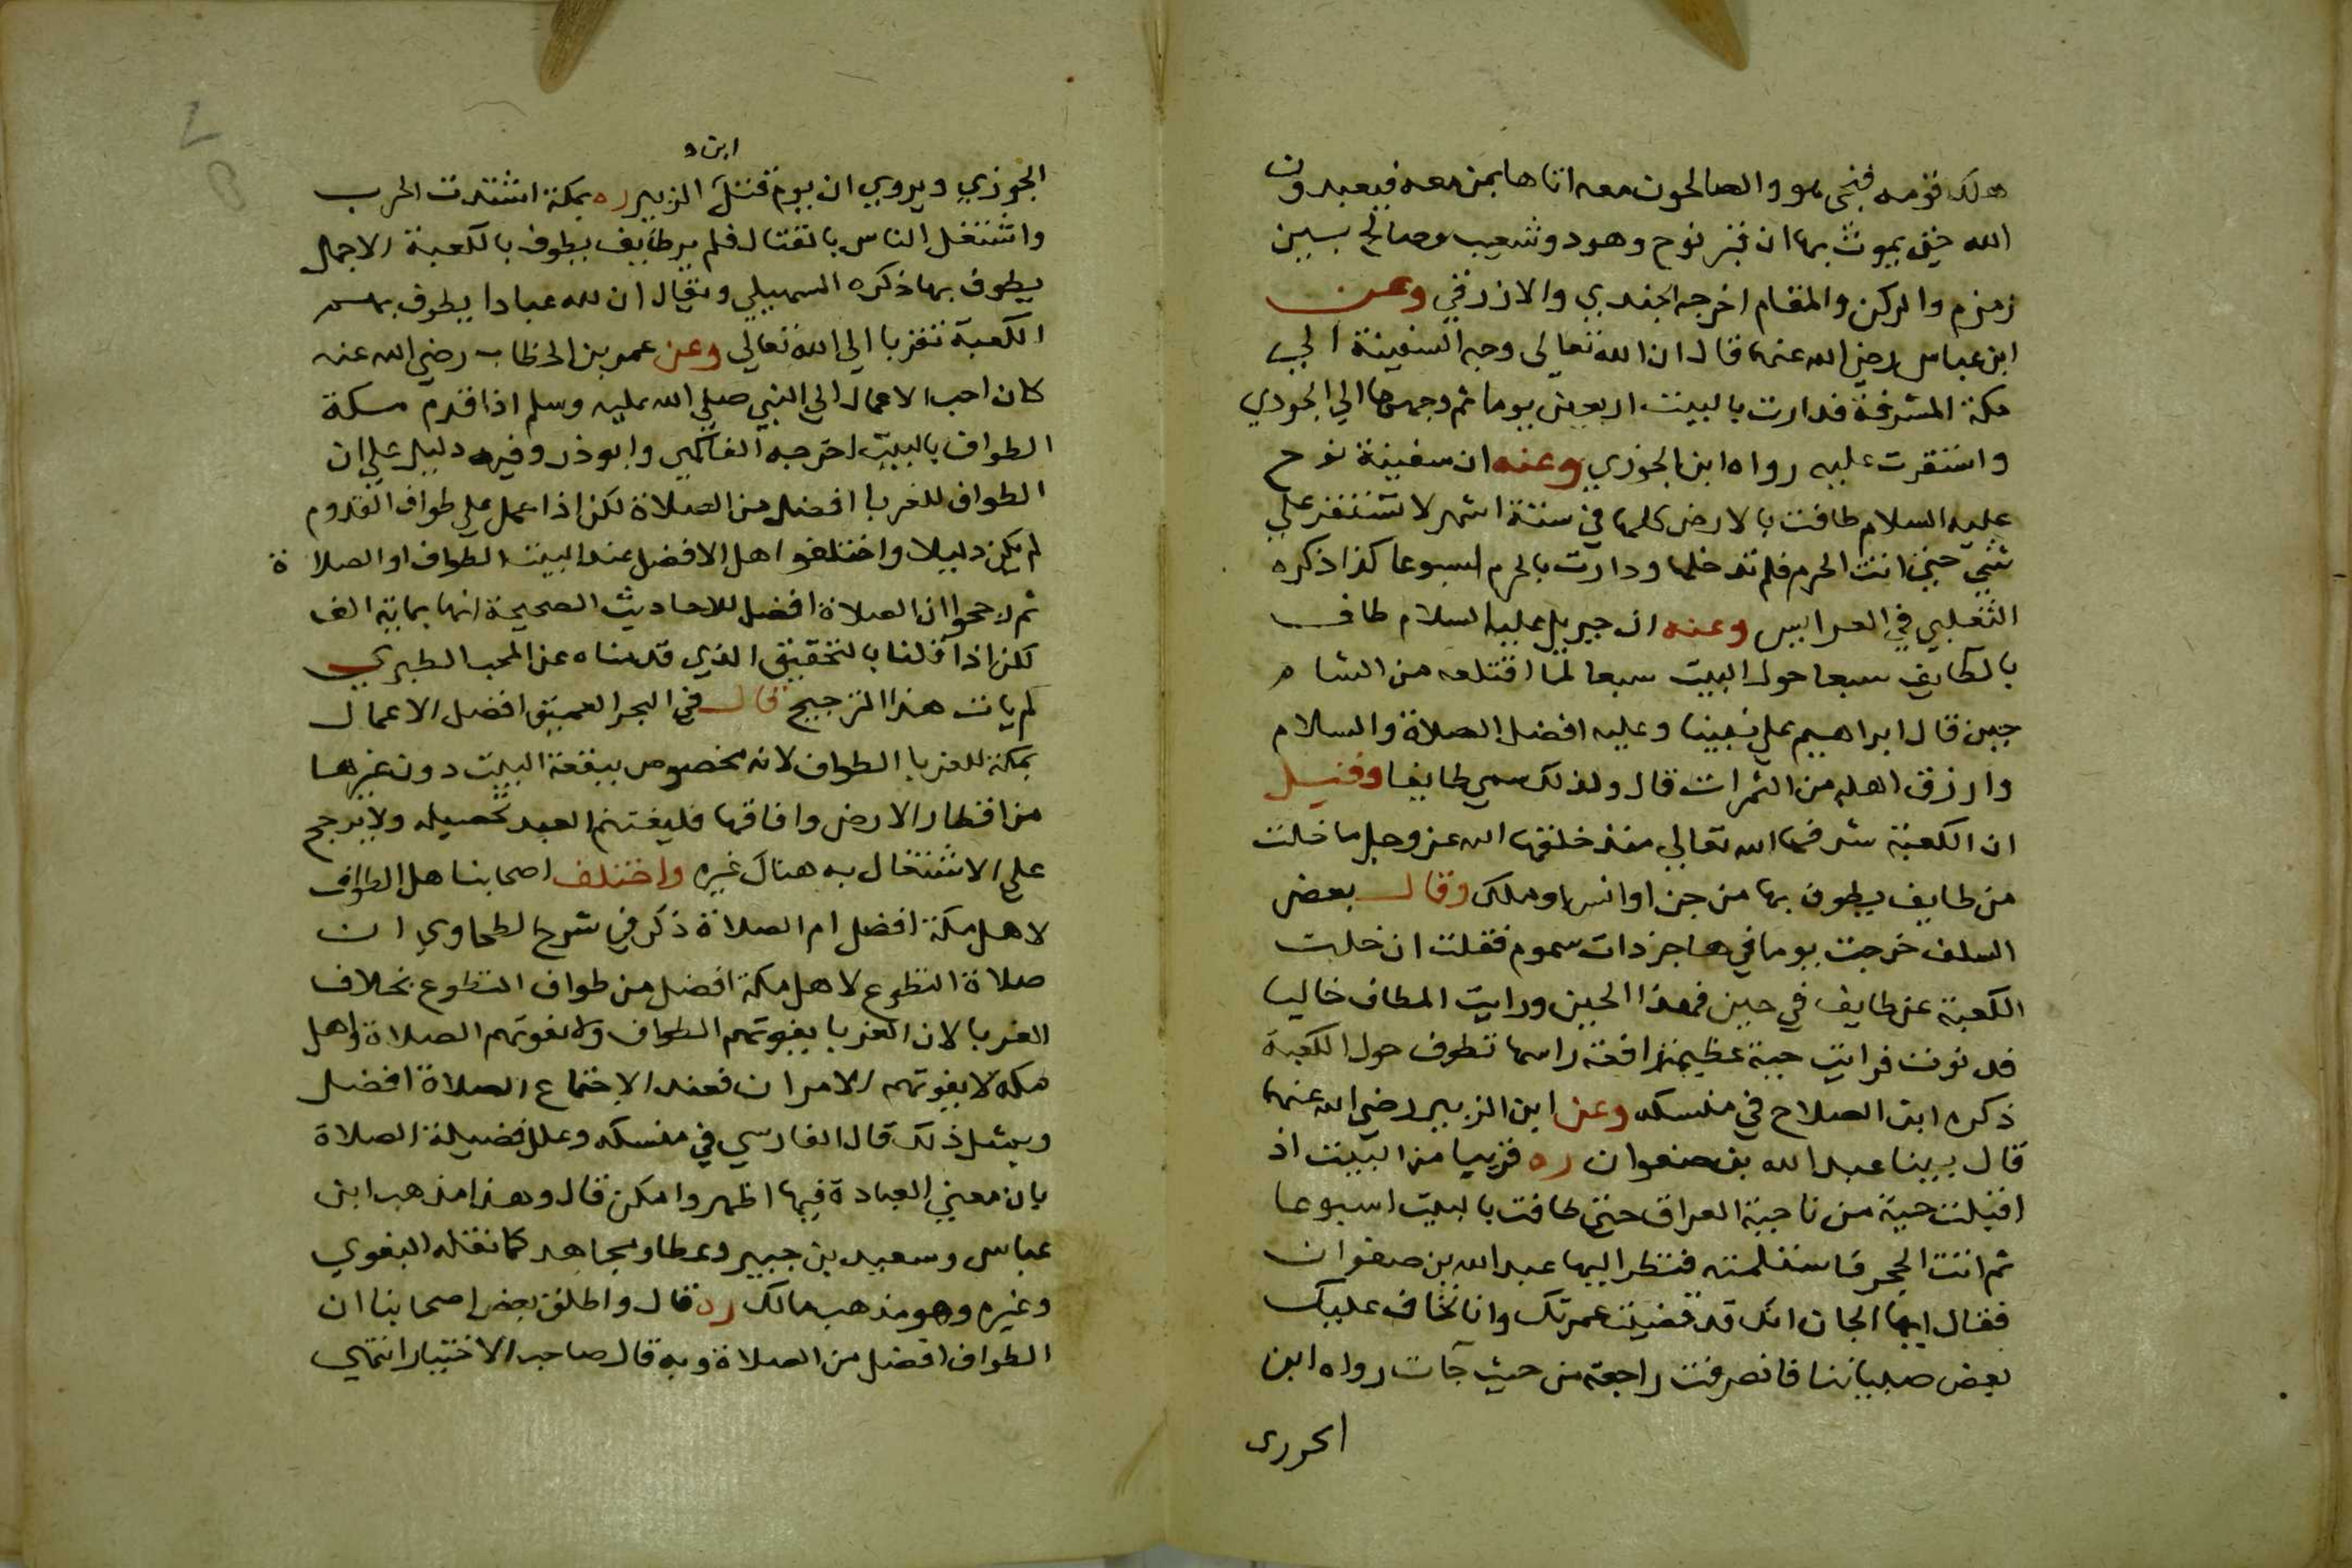 هلك قومه فنجى هو والصالحون معه اتاها بمن معه فيعبدون
الله حتى يموت بها ان قبر نوح وهود وشعيب وصالح بين
زمزم والركن والمقام اخرجه الجندي والازرقي وعن
ابن عباس رضي الله عنهما قال ان الله تعالى وجه السفينة الي
مكة المشرفة فدارت بالبيت اربعين يوما ثم وجهها الي الجودي
واستقرت عليه رواه ابن الجوزي وعنه ان سفينة نوح
عليه السلام طافت بالارض كلها في ستة اشهر لا تستقر علي
شي حتى اتت الحرم فلم تدخلها ودارت بالحرم اسبوعا كذا ذكره
الثعلبي في العرايس وعنه ان جبريل عليه السلام طاف
بالطايف سبعا حول البيت سبعا لما اقتلعه من الشام
حين قال ابراهيم علي نبينا وعليه افضل الصلاة والسلام
وارزق اهله من الثمرات قال ولذلك سمي طايفا وقيل
ان الكعبة شرفها الله تعالي منذ خلقها الله عز وجل ما خلت
من طايف يطوف بها من جن او انس او ملك وقال بعض
السلف خرجت يوما في هاجر ذات سموم فقلت ان خلت
الكعبة عن طايف في حين فهذا الحين ورايت المطاف خاليا
فدنوت فرايت حية عظيمة رافعة راسها تطوف حول الكعبة
ذكره ابن الصلاح في منسكه وعن ابن الزبير رضي الله عنهما
قال بينا عبد الله بن صفوان ره قريبا من البيت اذ
اقبلت حية من ناحية العراق حتى طافت بالبيت اسبوعا
ثم اتت الحجر فاستلمته فنظر اليها عبد الله بن صفوان
فقال ايها الجان انك قد قضيت عمرتك وانا نخاف عليك
بعض صبياننا فانصرفت راجعة من حيث جآت رواه ابن
الحوزى
ابن و
الجوزي ويروي ان يوم قتل الزبير ره بمكة اشتدت الحرب
واشتغل الناس بالقتال فلم ير طايف يطوف بالكعبة الا جمل
يطوف بها ذكره السهيلي ويقال ان لله عبادا يطوف بهم
الكعبة تقربا الي الله تعالي وعن عمر بن الخطاب رضي الله عنه
كان احب الاعمال الي النبي صلي الله عليه وسلم اذا قدم مكة
الطواف بالبيت اخرجه الفاكهي وابوذر وفيه دليل علي ان
الطواف للغربا افضل من الصلاة لكن اذا عمل علي طواف القدوم
لم يكن دليلا واختلفوا هل الافضل عند البيت الطواف او الصلاة
ثم رجحوا ان الصلاة افضل للاحاديث الصحيحة انها بماية الف
لكن اذا قلنا بالتحقيق الذي قدمناه عن المحب الطبري
لم يات هذا الترجيح قال في البحر العميق افضل الاعمال
بمكة للغربا الطواف لانه مخصوص ببقعة البيت دون غيرها
من اقطار الارض وافاقها فليغتنم العبد تحصيله ولا يرجح
علي الاشتغال به هناك غيره واختلف اصحابنا هل الطواف
لاهل مكة افضل ام الصلاة ذكر في شرح الطحاوي ان
صلاة التطوع لاهل مكة افضل من طواف التطوع بخلاف
الغربا لان الغربا يفوتهم الطواف ولا يفوتهم الصلاة واهل
مكه لا يفوتهم الامران فعند الاجتماع الصلاة افضل
وبمثل ذلك قال الفارسي في منسكه وعلل فضيلة الصلاة
بان معني العبادة فيها اظهر وامكن قال وهذا مذهب ابن
عباس وسعيد بن جبير وعطا ومجاهد كما نقله البغوي
وغيره وهو مذهب مالك ره قال واطلق بعض اصحابنا ان
الطواف افضل من الصلاة وبه قال صاحب الاختيار انتهي